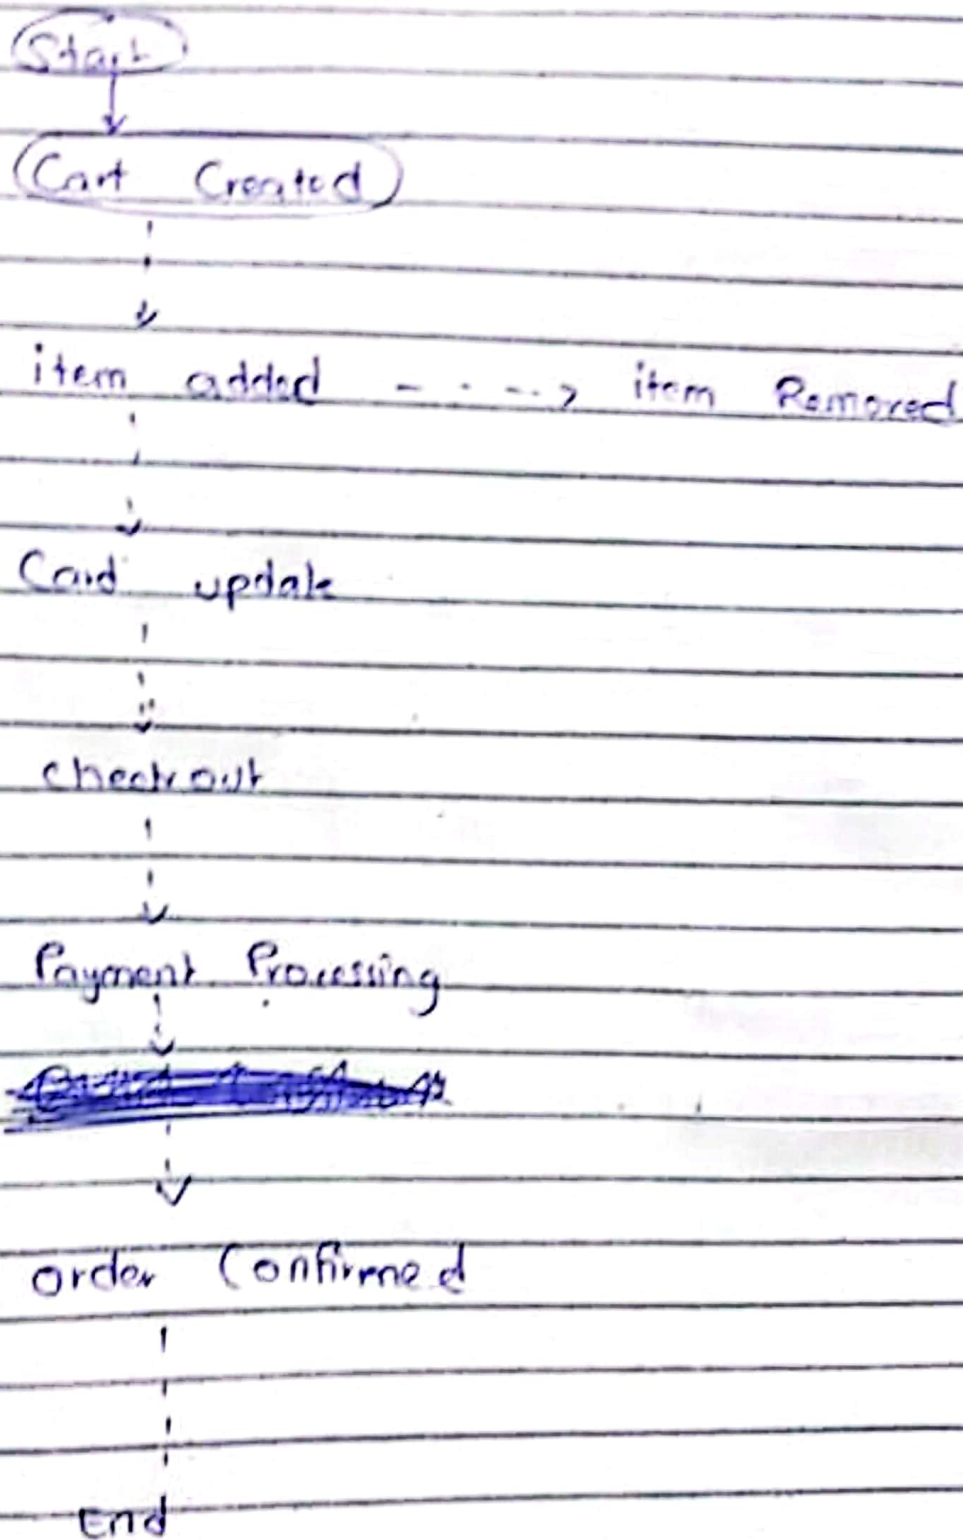 Start
Cart Created
item added - - - -> item Removed
Card update
checkout
Payment Processing
order Confirmed
End